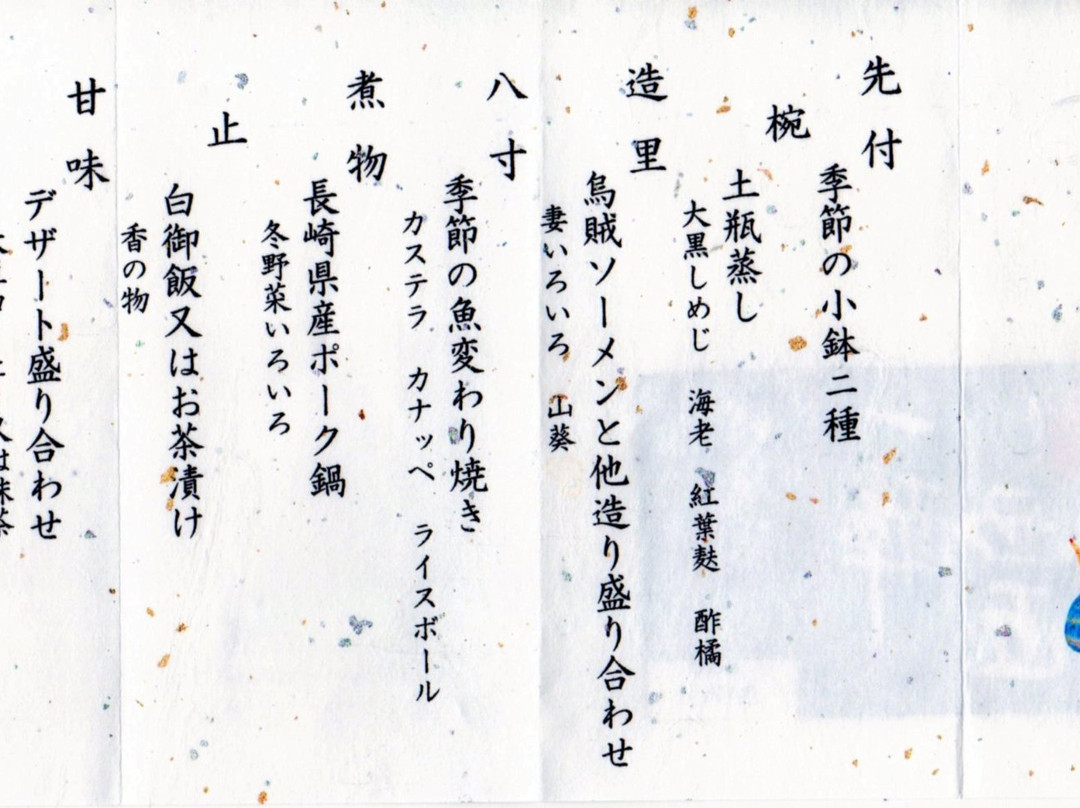 先付
季節の小鉢二種
椀
土瓶蒸し
大黒しめじ 海老 紅葉麩 酢橘
造里
烏賊ソーメンと他造り盛り合わせ
妻いろいろ 山葵
八寸
季節の魚変わり焼き
カステラ カナッペ ライスボール
煮物
長崎県産ポーク鍋
冬野菜いろいろ
止
白御飯又はお茶漬け
香の物
甘味
デザート盛り合わせ